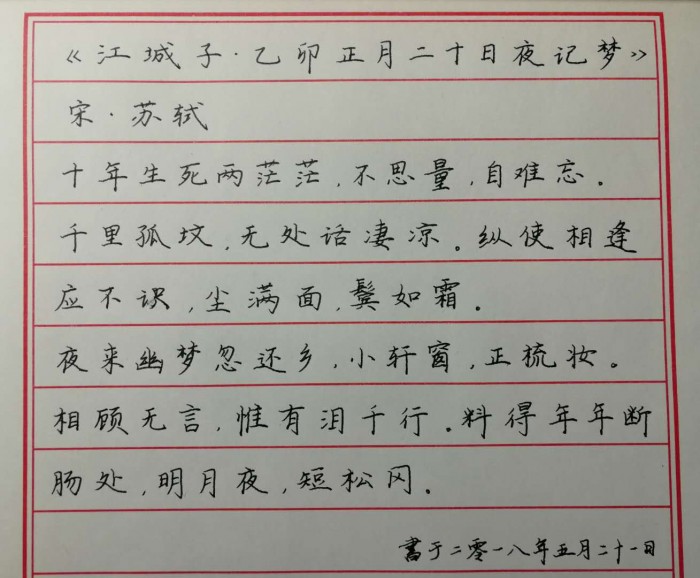 《江城子·乙卯正月二十日夜记梦》
宋·苏轼
十年生死两茫茫,不思量,自难忘。
千里孤坟,无处话凄凉。纵使相逢
应不识,尘满面,鬓如霜。
夜来幽梦忽还乡,小轩窗,正梳妆。
相顾无言,惟有泪千行。料得年年断
肠处,明月夜,短松冈。
書于二零一八年五月二十一日